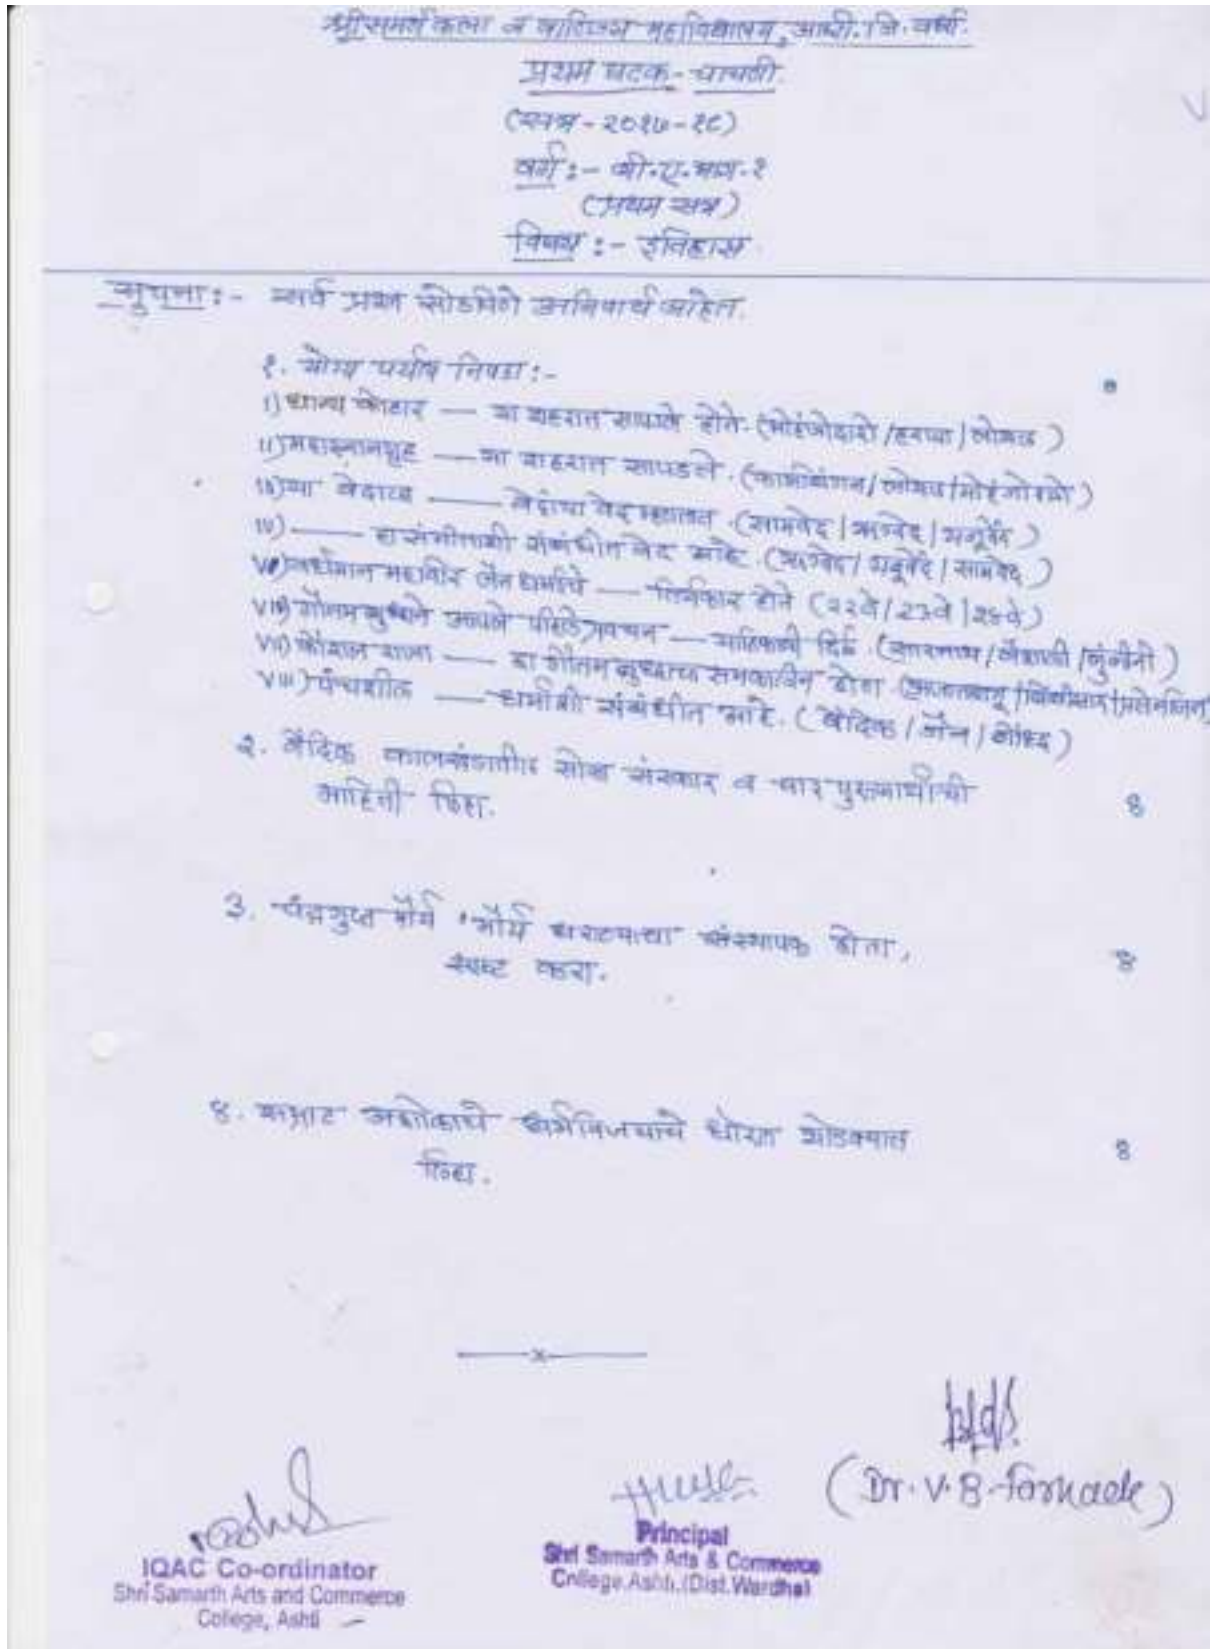 श्री समर्थ कला व वाणिज्य महाविद्यालय, आष्टी. जि. वर्धा.
प्रथम घटक - चाचणी.
(सत्र - २०१७-१८)
वर्ग :- बी.ए. भाग. १
(प्रथम सत्र)
विषय :- इतिहास.
सुचना :- सर्व प्रश्न सोडविणे अनिवार्य आहेत.
१. योग्य पर्याय निवडा :-
I) धान्य कोठार — या शहरात सापडले होते. (मोहंजोदारो / हडप्पा / लोथल )
II) महास्नानगृह — या शहरात सापडले. (कालीबंगन / लोथल /
III) या वेदाला — वेदांचा वेद म्हणतात. (सामवेद / ऋग्वेद / यजूर्वेद )
IV) — हा संगीताशी संबंधीत वेद आहे. (ऋग्वेद / यजूर्वेद / सामवेद )
V) वर्धमान महावीर जैन धर्माचे — तिर्थंकार होते (२२वे / 23वे / २४वे )
VI) गौतम बुध्दाने आपले पहिले प्रवचन — याठिकाणी दिले. (सारनाथ / वैशाली / लुंबीनी )
VII) कोशल राजा — हा गौतम बुध्दाचा समकालिन होता. (अजातशत्रू / बिंबीसार / प्रसेनजित)
VIII) पंचशील — धर्माशी संबंधीत आहे. ( वैदिक / जैन / बौध्द )
२. वैदिक कालखंडातील सोळा संस्कार व चार पुरुषार्थाची
माहिती लिहा. ४
3. चंद्रगुप्त मौर्य 'मौर्य घराण्याचा संस्थापक होता,
स्पष्ट करा. ४
४. सम्राट अशोकाचे धर्मविजयाचे धोरण थोडक्यात
लिहा. ४
—x—
(Dr. V. B.
IQAC Co-ordinator
Shri Samarth Arts and Commerce
College, Ashti
Principal
Shri Samarth Arts & Commerce
College, Ashti. (Dist. Wardha)